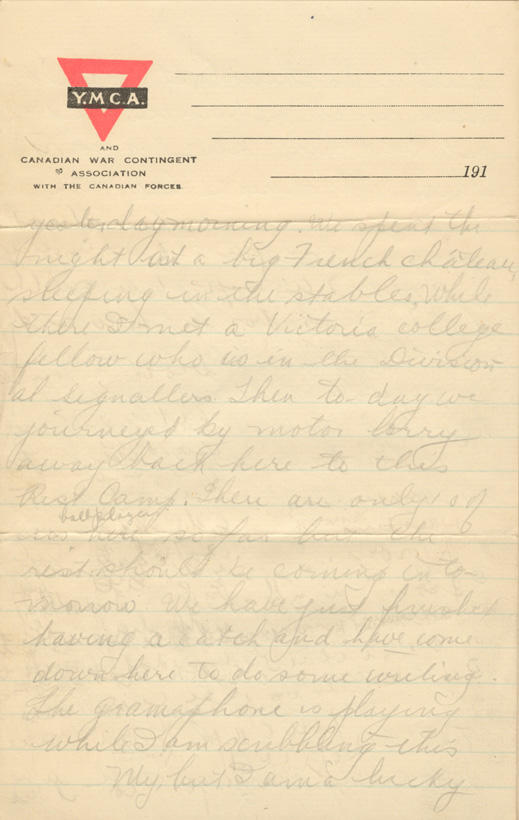 Y.M.C.A.
AND
CANADIAN WAR CONTINGENT
ASSOCIATION
WITH THE CANADIAN FORCES.
191
yesterday morning. We spent the
night at a big French château,
sleeping in the stables. While
there I met a Victoria college
fellow who is in the Division-
al Signallers. Then to-day we
journeyed by motor lorry
away back here to this
Rest Camp. There are only 10 of
ball players
us here so far but the
rest should be coming in to-
morrow. We have just finished
having a catch and have come
down here to do some writing.
The gramaphone is playing
while I am scribbling this
My, but I am a lucky